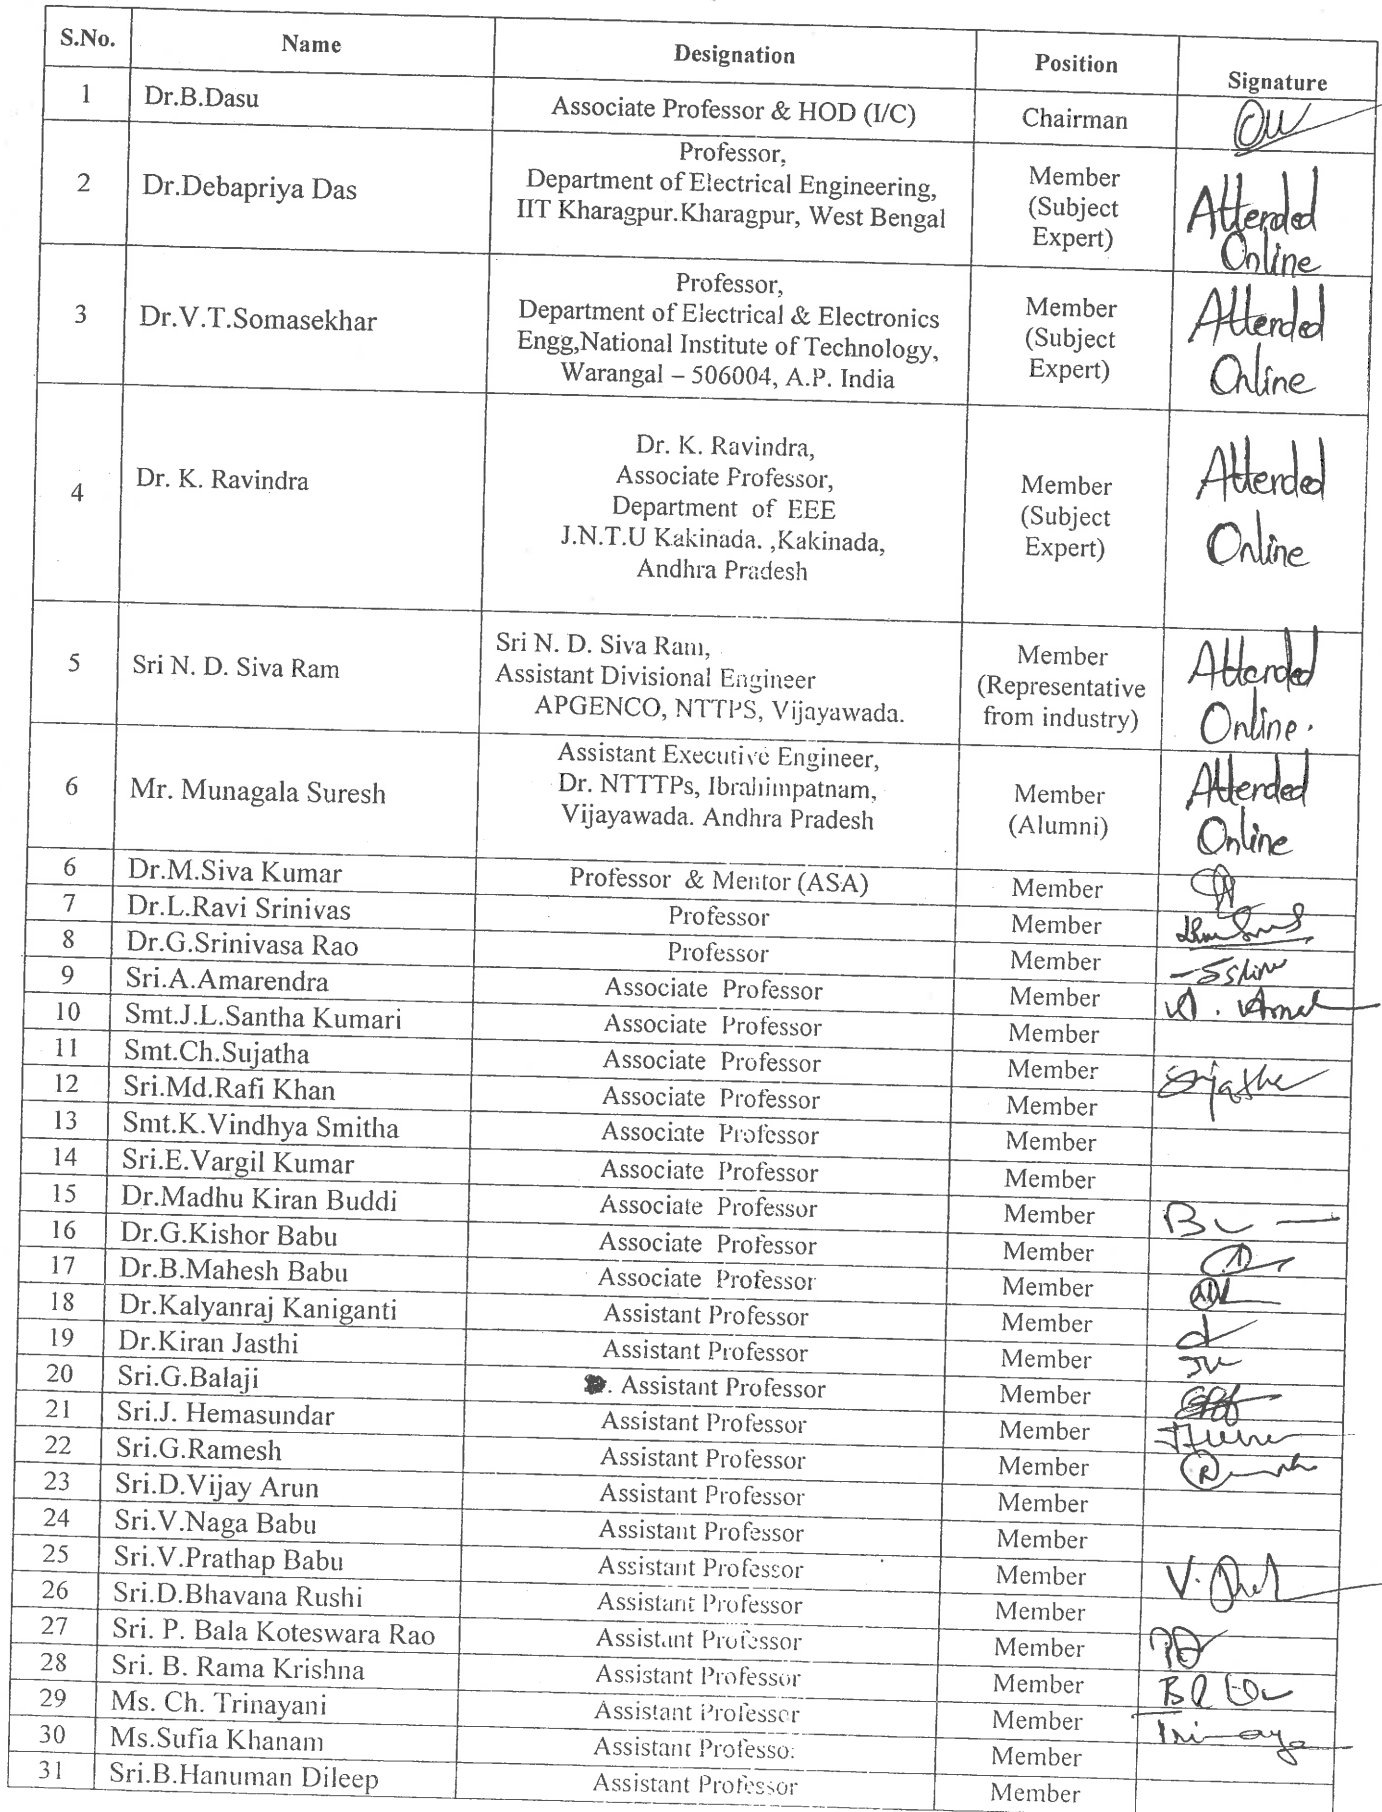 S.No. Name Designation Position Signature
1 Dr.B.Dasu Associate Professor & HOD (I/C) Chairman
2 Dr.Debapriya Das Professor,
Department of Electrical Engineering,
IIT Kharagpur.Kharagpur, West Bengal
Member
(Subject
Expert)
Attended
Online
3 Dr.V.T.Somasekhar Professor,
Department of Electrical & Electronics
Engg,National Institute of Technology,
Warangal – 506004, A.P. India
Member
(Subject
Expert)
Attended
Online
4 Dr. K. Ravindra Dr. K. Ravindra,
Associate Professor,
Department of EEE
J.N.T.U Kakinada. ,Kakinada,
Andhra Pradesh
Member
(Subject
Expert)
Attended
Online
5 Sri N. D. Siva Ram Sri N. D. Siva Ram,
Assistant Divisional Engineer
APGENCO, NTTPS, Vijayawada.
Member
(Representative
from industry)
Attended
Online.
6 Mr. Munagala Suresh Assistant Executive Engineer,
Dr. NTTTPs, Ibrahimpatnam,
Vijayawada. Andhra Pradesh
Member
(Alumni)
Attended
Online
6 Dr.M.Siva Kumar Professor & Mentor (ASA) Member
7 Dr.L.Ravi Srinivas Professor Member
8 Dr.G.Srinivasa Rao Professor Member
9 Sri.A.Amarendra Associate Professor Member
10 Smt.J.L.Santha Kumari Associate Professor Member
11 Smt.Ch.Sujatha Associate Professor Member
12 Sri.Md.Rafi Khan Associate Professor Member
13 Smt.K.Vindhya Smitha Associate Professor Member
14 Sri.E.Vargil Kumar Associate Professor Member
15 Dr.Madhu Kiran Buddi Associate Professor Member
16 Dr.G.Kishor Babu Associate Professor Member
17 Dr.B.Mahesh Babu Associate Professor Member
18 Dr.Kalyanraj Kaniganti Assistant Professor Member
19 Dr.Kiran Jasthi Assistant Professor Member
20 Sri.G.Balaji . Assistant Professor Member
21 Sri.J. Hemasundar Assistant Professor Member
22 Sri.G.Ramesh Assistant Professor Member
23 Sri.D.Vijay Arun Assistant Professor Member
24 Sri.V.Naga Babu Assistant Professor Member
25 Sri.V.Prathap Babu Assistant Professor Member
26 Sri.D.Bhavana Rushi Assistant Professor Member
27 Sri. P. Bala Koteswara Rao Assistant Professor Member
28 Sri. B. Rama Krishna Assistant Professor Member
29 Ms. Ch. Trinayani Assistant Professor Member
30 Ms.Sufia Khanam Assistant Professor Member
31 Sri.B.Hanuman Dileep Assistant Professor Member